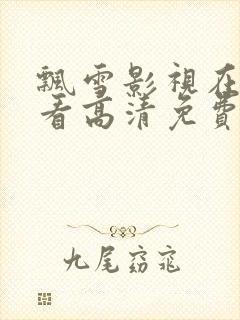 飄雪影視在
看高清免費
九尾窈窕